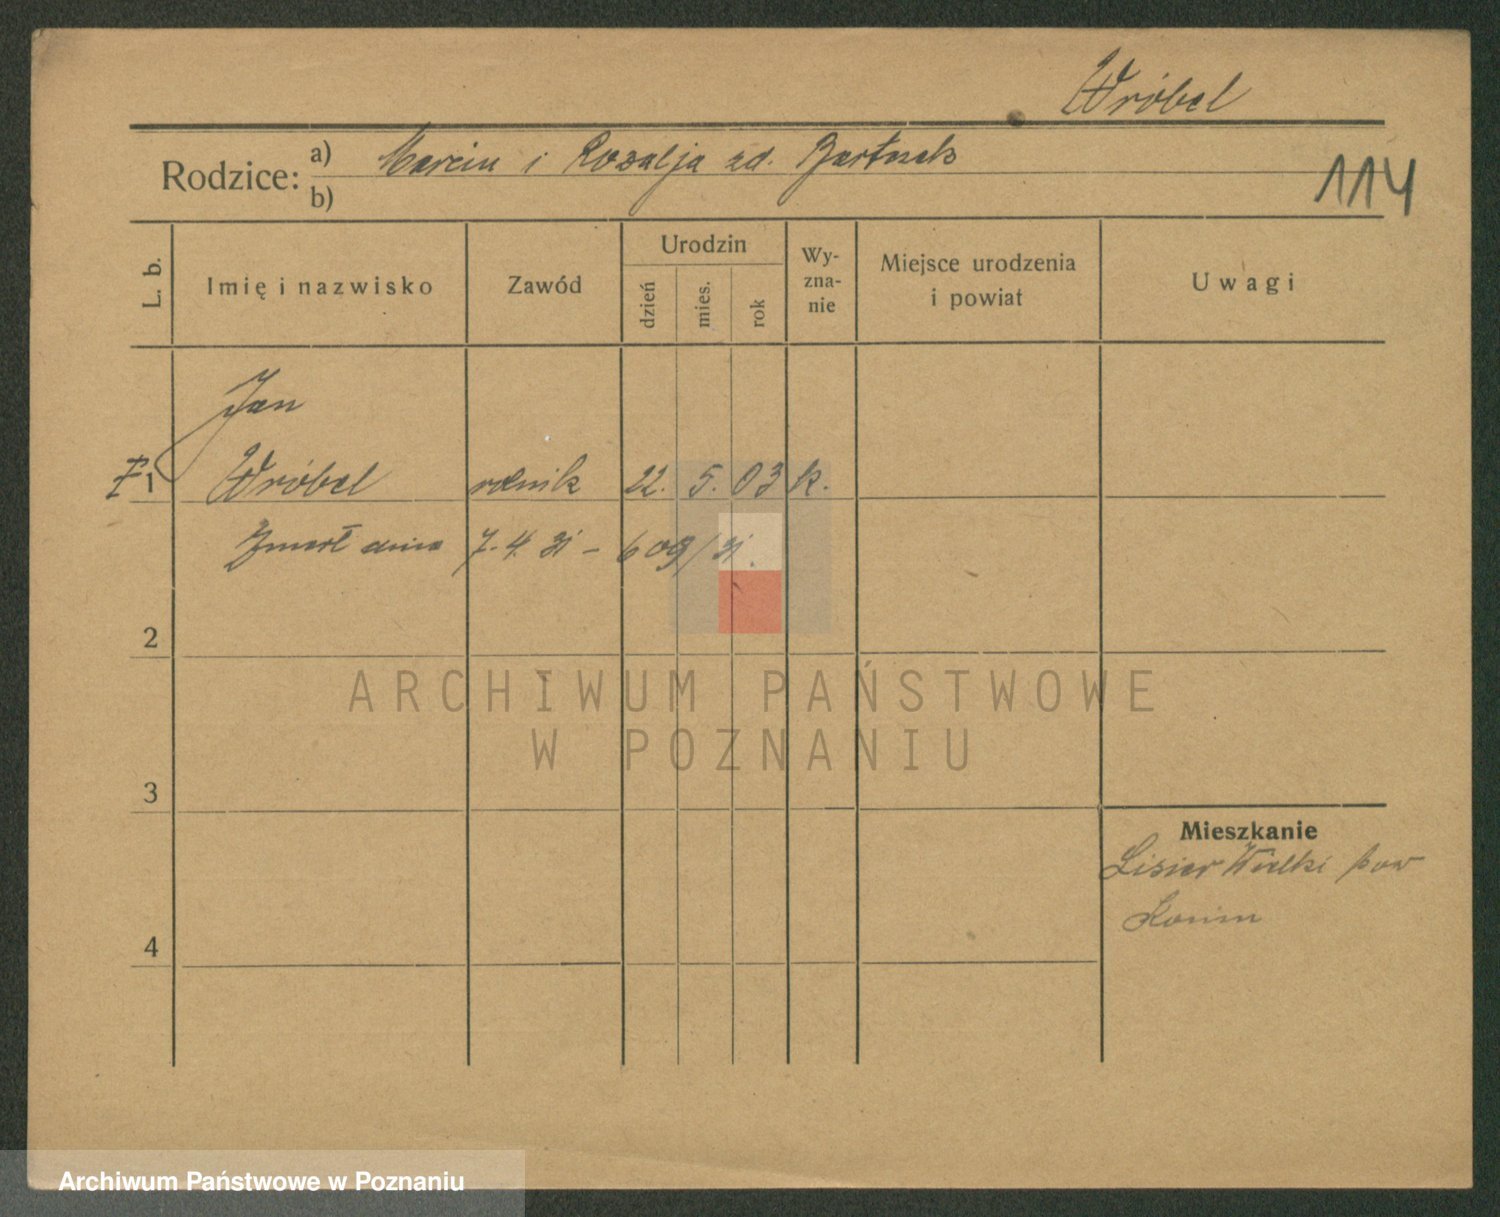 Wróbel
Rodzice: a) Marcin i Rozalja zd. Bartnek
b)
114
L. b. Imię i nazwisko Zawód Urodzin dzień mies. rok Wy-zna-nie Miejsce urodzenia i powiat Uwagi
Jan
1 Wróbel rolnik 22. 5. 03 k.
Zmarł dnia 7.4.31 – 609/31.
2
ARCHIWUM PAŃSTWOWE
W POZNANIU
3
Mieszkanie
Wielki pow
Konin
4
Archiwum Państwowe w Poznaniu